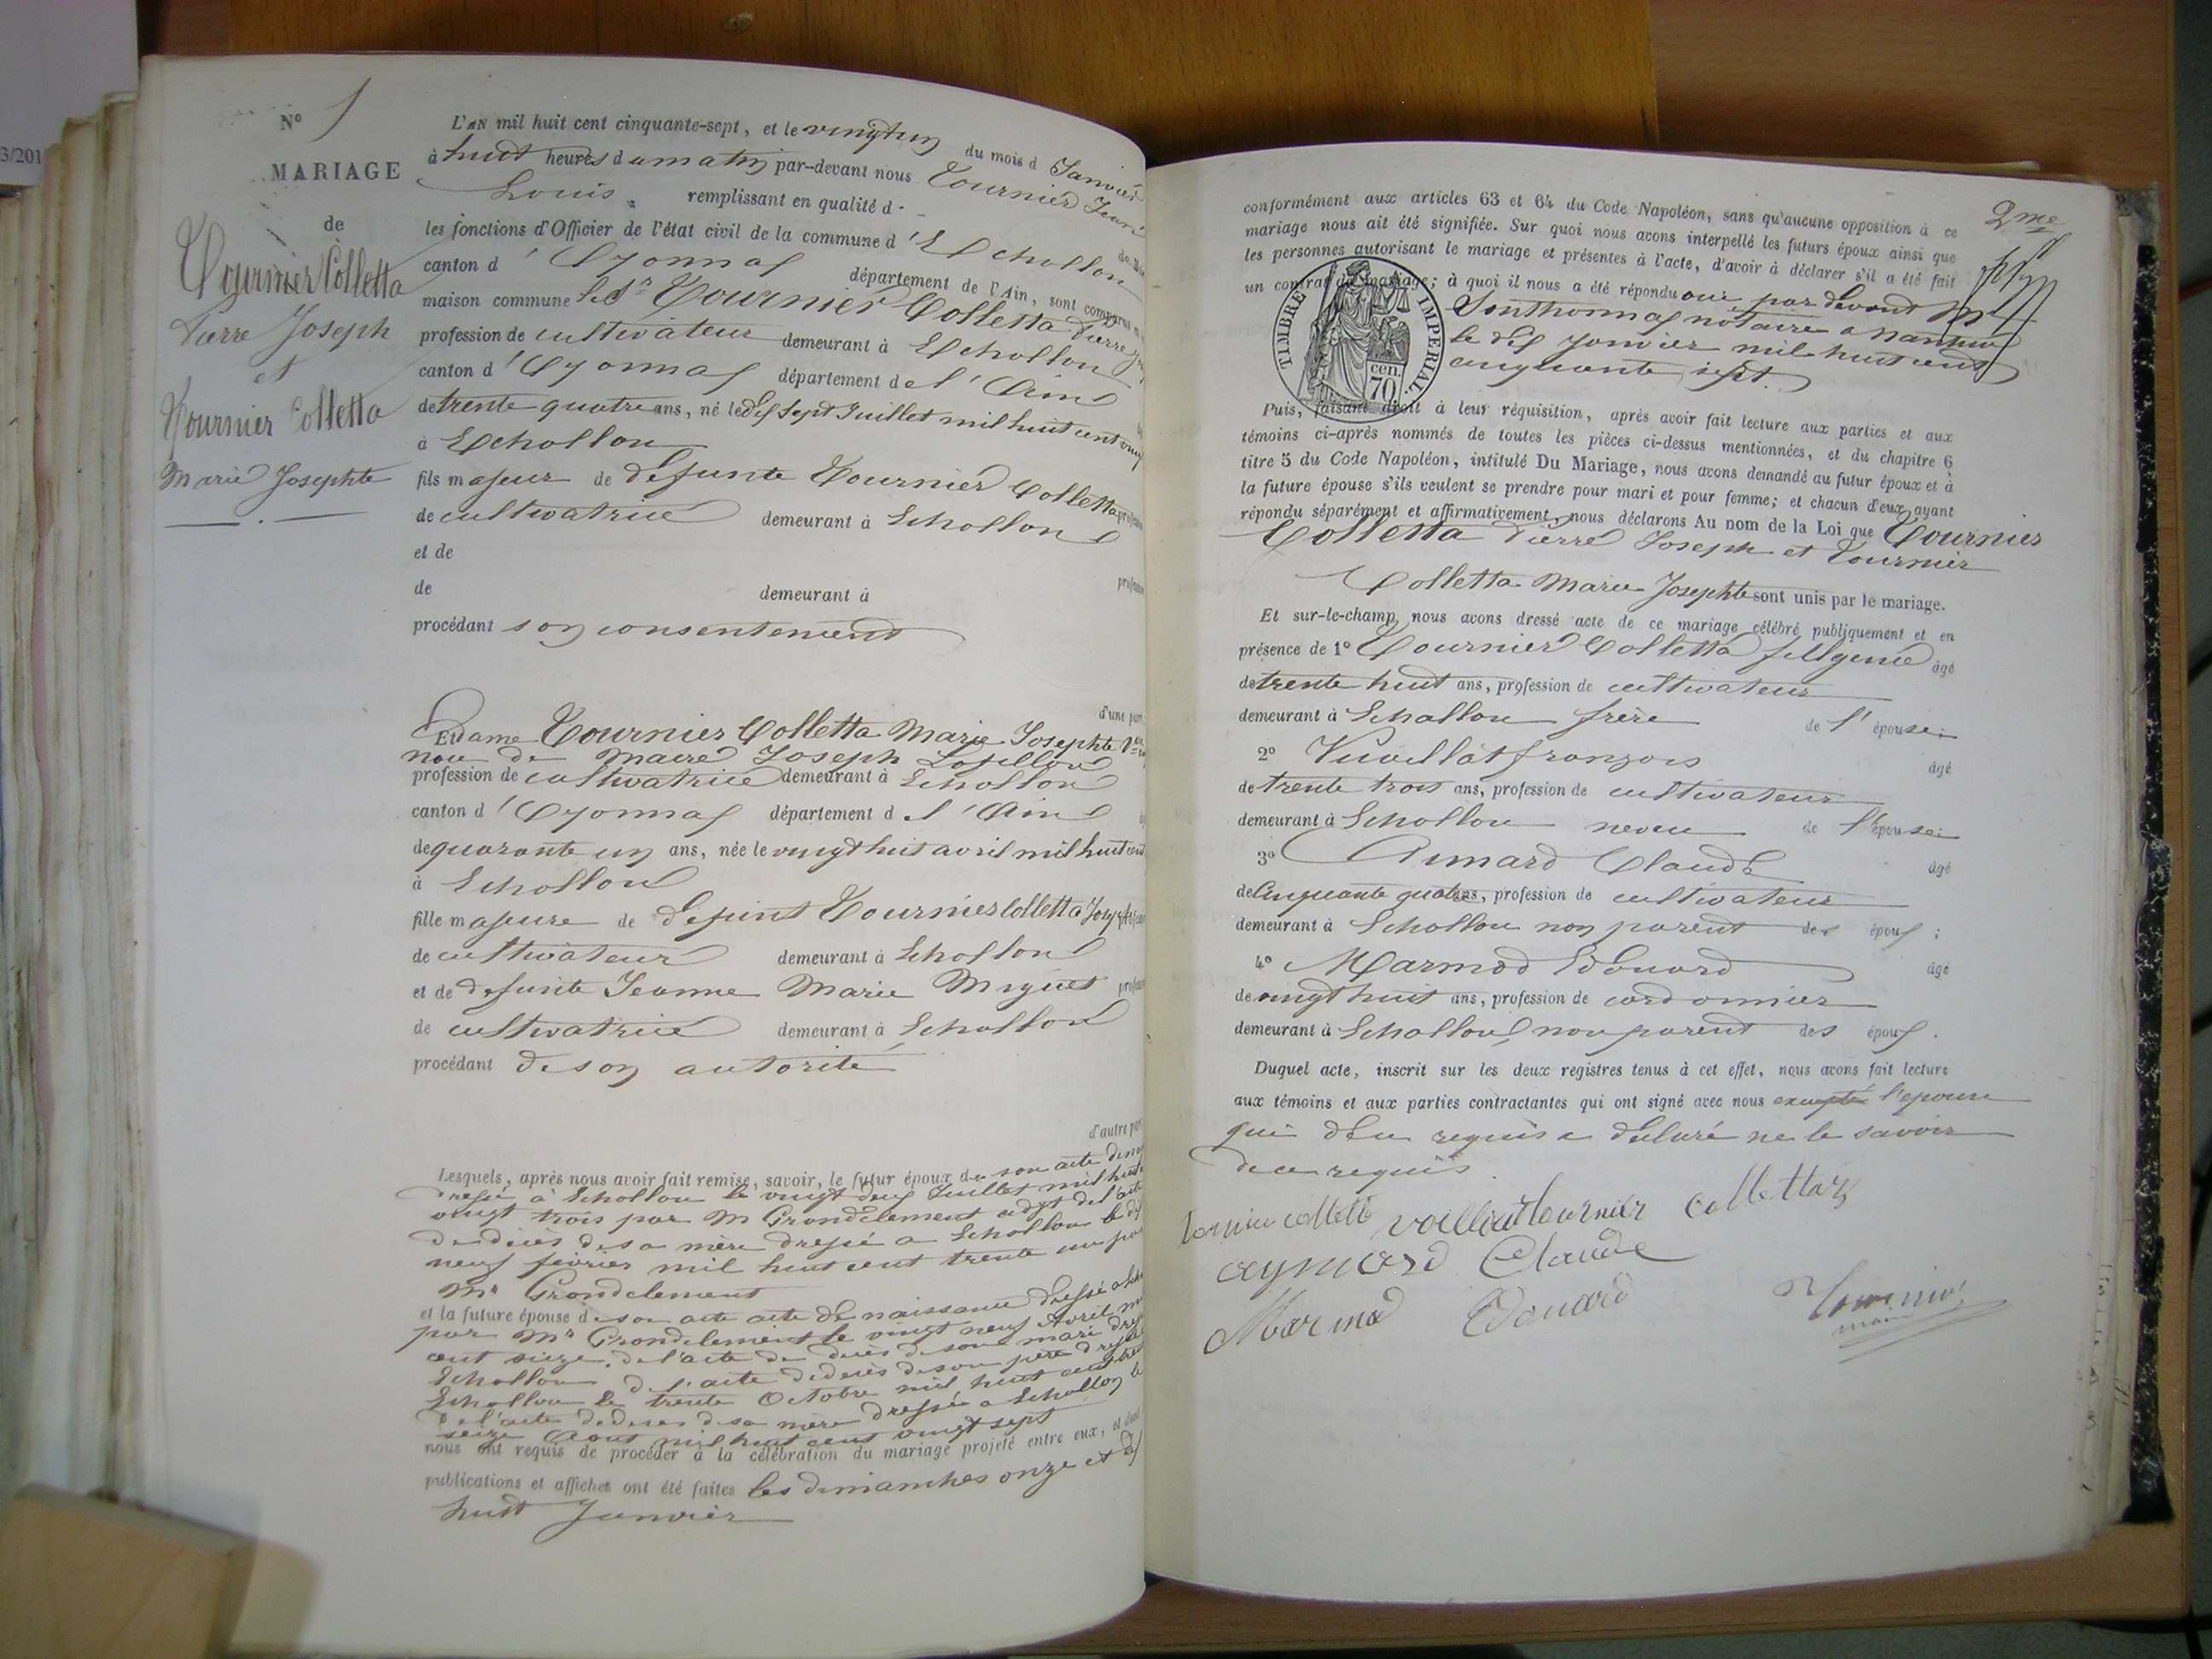 3/201
N° 1
MARIAGE
de
Tournier Colletta
Pierre Joseph
et
Tournier Colletta
Marie Josephte
L'AN mil huit cent cinquante-sept, et le vingt un du mois d Janvier
à huit heures du matin par-devant nous Tournier Jean
Louis remplissant en qualité d
les fonctions d'Officier de l'état civil de la commune d'Echallon
canton d'Oyonnax département de l'Ain, sont comparus
maison commune le Sr Tournier Colletta Pierre
profession de cultivateur demeurant à Echallon
canton d'Oyonnax département de l'Ain
de trente quatre ans, né le dix sept Juillet mil huit cent
à Echallon
fils majeur de défunte Tournier Colletta
de cultivatrice demeurant à Echallon
et de
de demeurant à
procédant son consentement
d'une part
Et dame Tournier Colletta Marie Josephte
de Maire Joseph
profession de cultivatrice demeurant à Echallon
canton d'Oyonnax département de l'Ain
de quarante un ans, née le vingt huit avril mil huit cent
à Echallon
fille majeure de défunt Tournier Colletta Joseph
de cultivateur demeurant à Echallon
et de défunte Jeanne Marie Miguet
de cultivatrice demeurant à Echallon
procédant de son autorité
d'autre part
Lesquels, après nous avoir fait remise, savoir, le futur époux de son acte de
dressé à Echallon le vingt deux Juillet mil huit
vingt trois par Mr Grandclement de l'acte
de décès de sa mère dressé à Echallon le dix
neuf février mil huit cent trente un par
Mr Grandclement
et la future épouse de son acte acte de naissance dressé
par Mr Grandclement le vingt neuf Avril
cent seize, de l'acte de décès de son mari
Echallon de l'acte de décès de son père
Echallon le trente Octobre mil huit cent
de l'acte de décès de sa mère dressé à Echallon le
seize Aout mil huit cent vingt sept
nous ont requis de procéder à la célébration du mariage projeté entre eux, et dont
publications et affiches ont été faites les dimanches onze et dix
huit Janvier
2me
conformément aux articles 63 et 64 du Code Napoléon, sans qu'aucune opposition à ce
mariage nous ait été signifiée. Sur quoi nous avons interpellé les futurs époux ainsi que
les personnes autorisant le mariage et présentes à l'acte, d'avoir à déclarer s'il a été fait
un contrat de mariage; à quoi il nous a été répondu oui par devant Me
Sonthonnax notaire à Nantua
le dix Janvier mil huit cent
cinquante sept
TIMBRE IMPERIAL
70 cen.
Puis, faisant droit à leur réquisition, après avoir fait lecture aux parties et aux
témoins ci-après nommés de toutes les pièces ci-dessus mentionnées, et du chapitre 6
titre 5 du Code Napoléon, intitulé Du Mariage, nous avons demandé au futur époux et à
la future épouse s'ils veulent se prendre pour mari et pour femme; et chacun d'eux ayant
répondu séparément et affirmativement, nous déclarons Au nom de la Loi que Tournier
Colletta Pierre Joseph et Tournier
Colletta Marie Josephte sont unis par le mariage.
Et sur-le-champ, nous avons dressé acte de ce mariage célébré publiquement et en
présence de 1° Tournier Colletta âgé
de trente huit ans, profession de cultivateur
demeurant à Echallon frère de l'épouse;
2° Vuaillat françois âgé
de trente trois ans, profession de cultivateur
demeurant à Echallon neveu de l'épouse;
3° Aimard Claude âgé
de Cinquante quatre ans, profession de cultivateur
demeurant à Echallon non parent des époux;
4° Marmod Edouard âgé
de vingt huit ans, profession de cordonnier
demeurant à Echallon non parent des époux.
Duquel acte, inscrit sur les deux registres tenus à cet effet, nous avons fait lecture
aux témoins et aux parties contractantes qui ont signé avec nous excepté l'épouse
qui requise a déclaré ne le savoir
de ce requis
vuilliat tournier collettaz
aymard Claude
Marmod Edouard
Tournier
maire